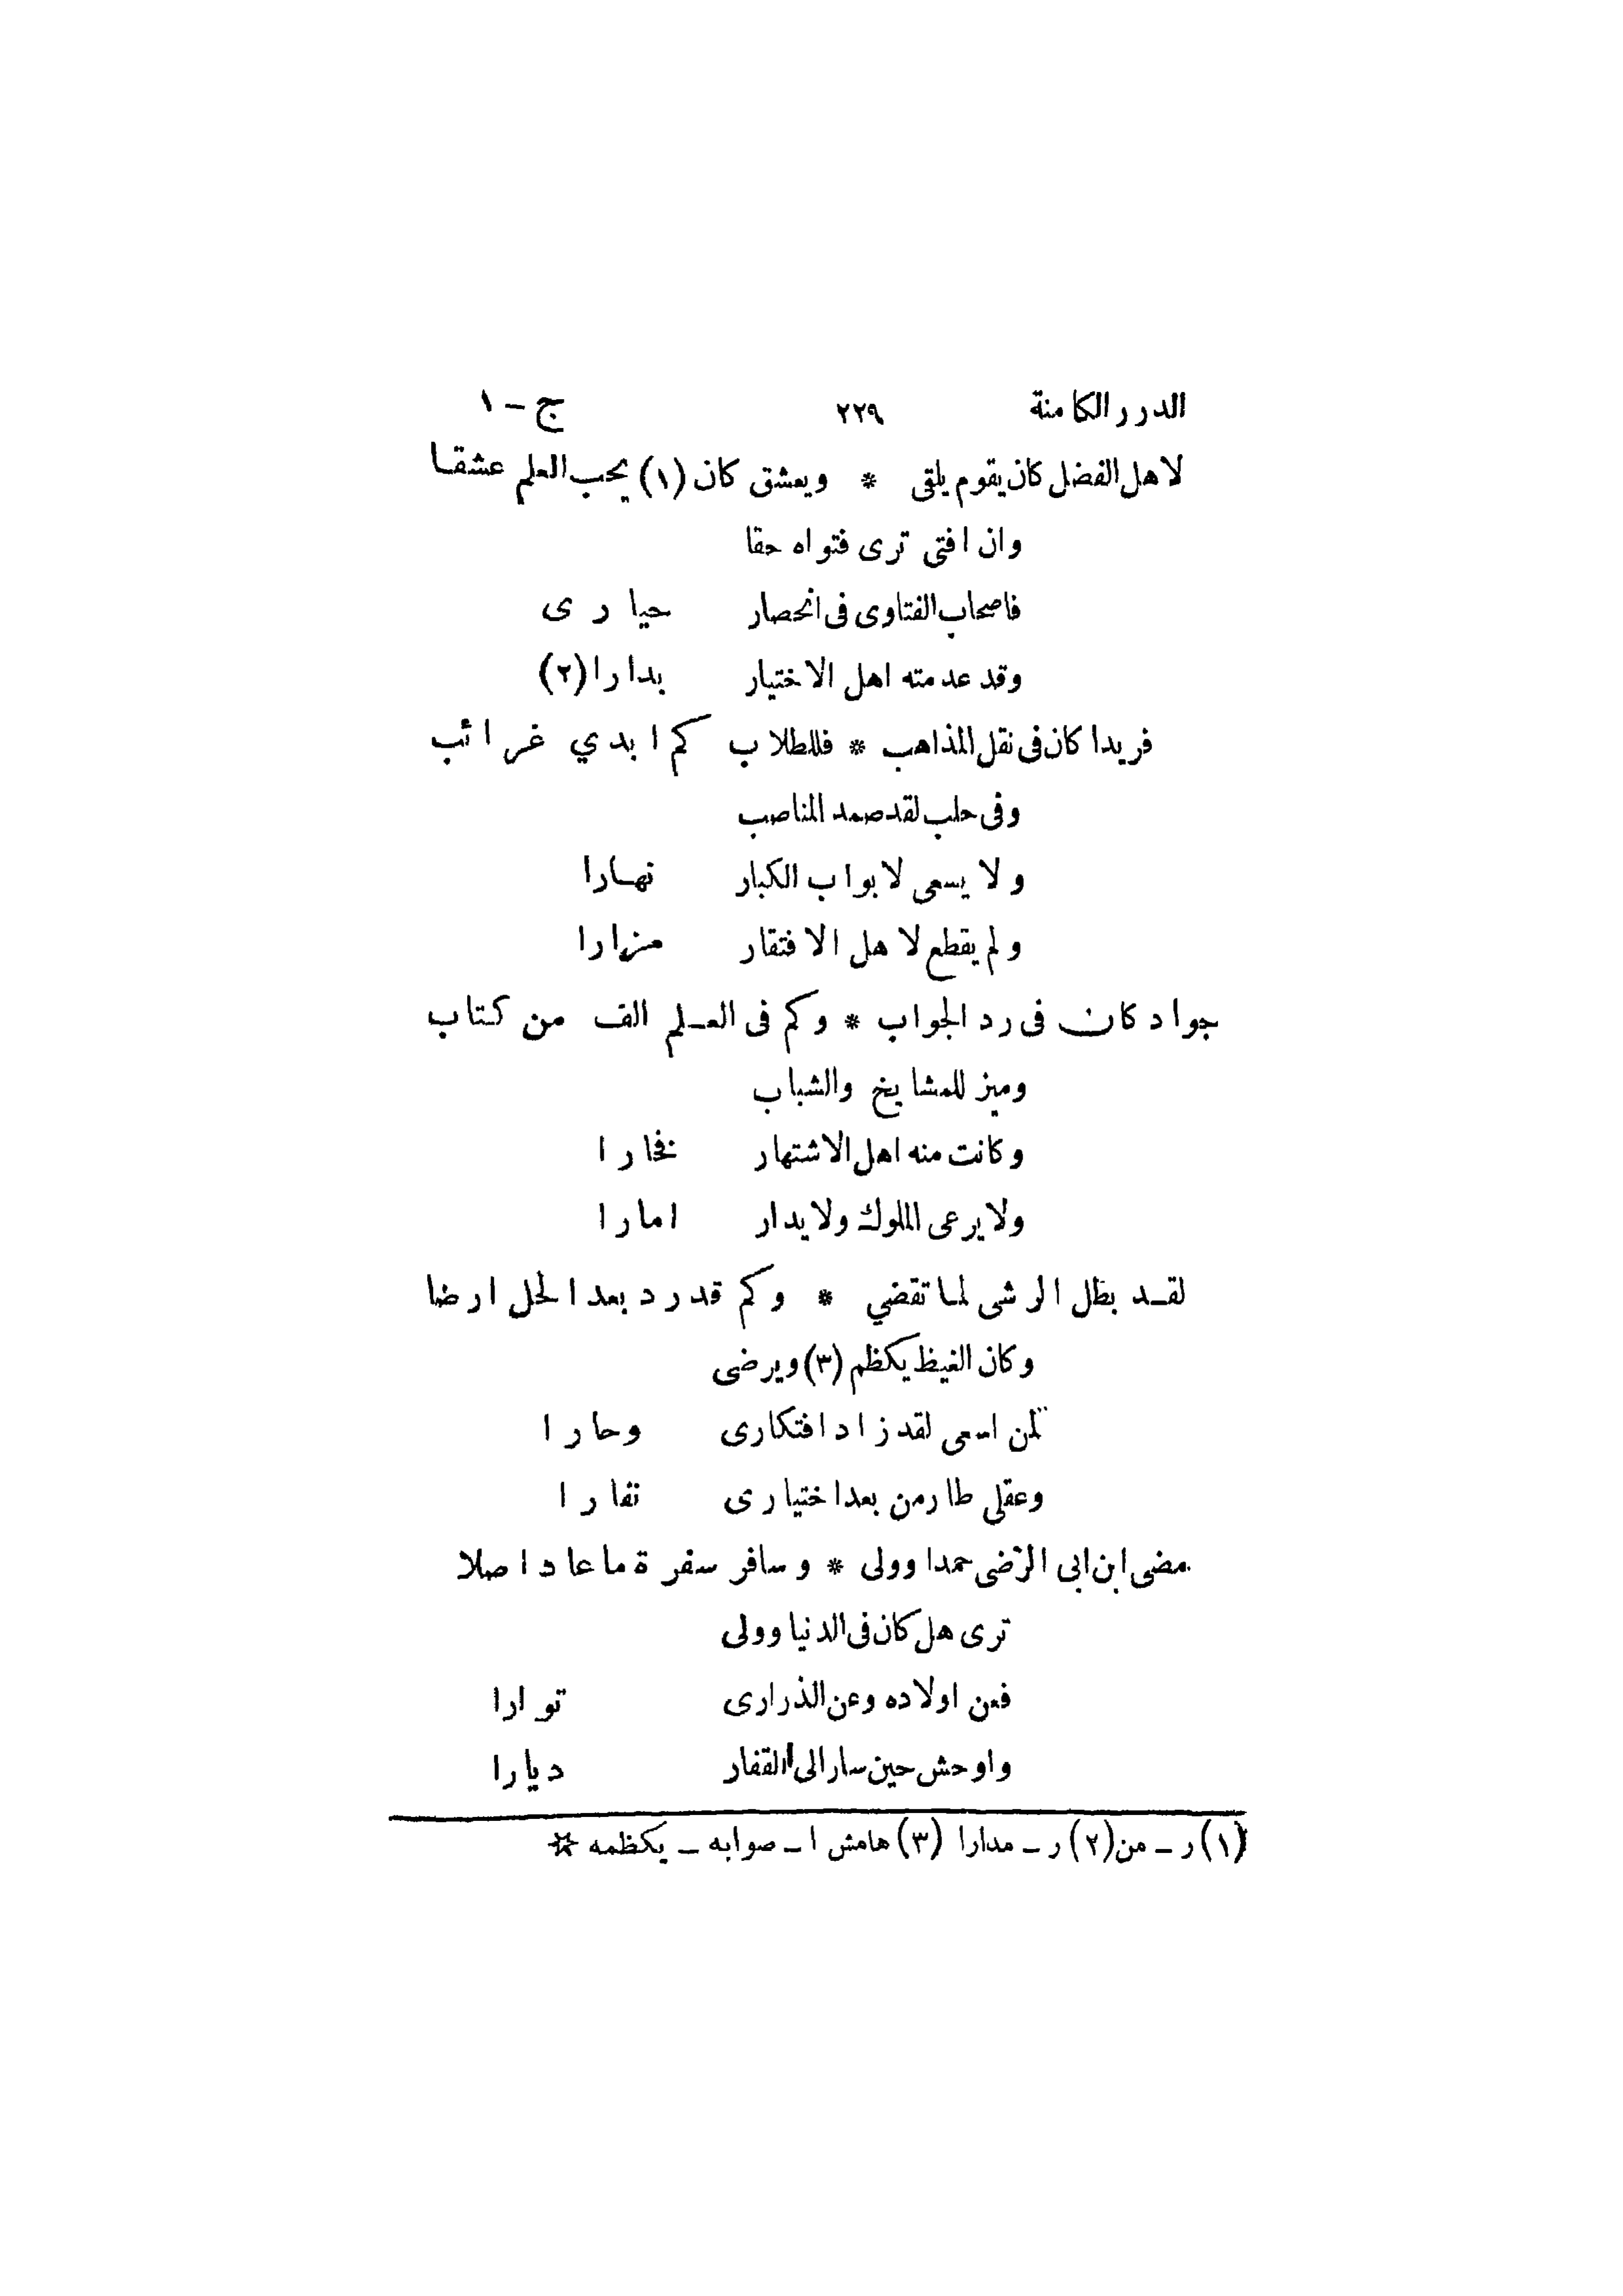 الدرر الكامنة ٢٢٩ ج - ١
لاهل الفضل كان يقوم يلقى * ويعشق كان (١) يحب العلم عشقا
وان افتى ترى فتواه حقا
فاصحاب الفتاوى فى انحصار حيارى
وقد عدمته اهل الاختيار بدارا (٢)
فريدا كان فى نقل المذاهب * فللطلاب كم ابدي غرائب
وفى حلب لقد صمد المناصب
ولا يسعى لابواب الكبار نهارا
ولم يقطع لاهل الافتقار مزارا
جواد كان فى رد الجواب * وكم فى العلم الف من كتاب
وميز للمشايخ والشباب
وكانت منه اهل الاشتهار نخارا
ولا يرعى الملوك ولا يدار امارا
لقد بطل الرشى لما تقضي * وكم قد رد بعد الحل ارضا
وكان الغيظ يكظم (٣) ويرضى
لمن اسعى لقد زاد افتكارى وحارا
وعقلى طار من بعد اختيارى نفارا
مضى ابن ابى الرضى حمدا وولى * وسافر سفرة ما عاد اصلا
ترى هل كان فى الدنيا وولى
فعن اولاده وعن الذرارى توارا
واوحش حين سار الى القفار ديارا
(١) ر ـ من (٢) ر ـ مدارا (٣) هامش ا ـ صوابه ـ يكظمه *